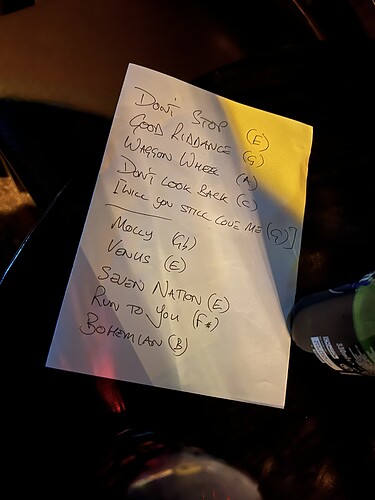 DON'T STOP (E)
GOOD RIDDANCE (G)
WAGGON WHEEL (A)
DON'T LOOK BACK (C)
[WILL YOU STILL LOVE ME (G)]
MOLLY (Gb)
VENUS (E)
SEVEN NATION (E)
RUN TO YOU (F#)
BOHEMIAN (B)